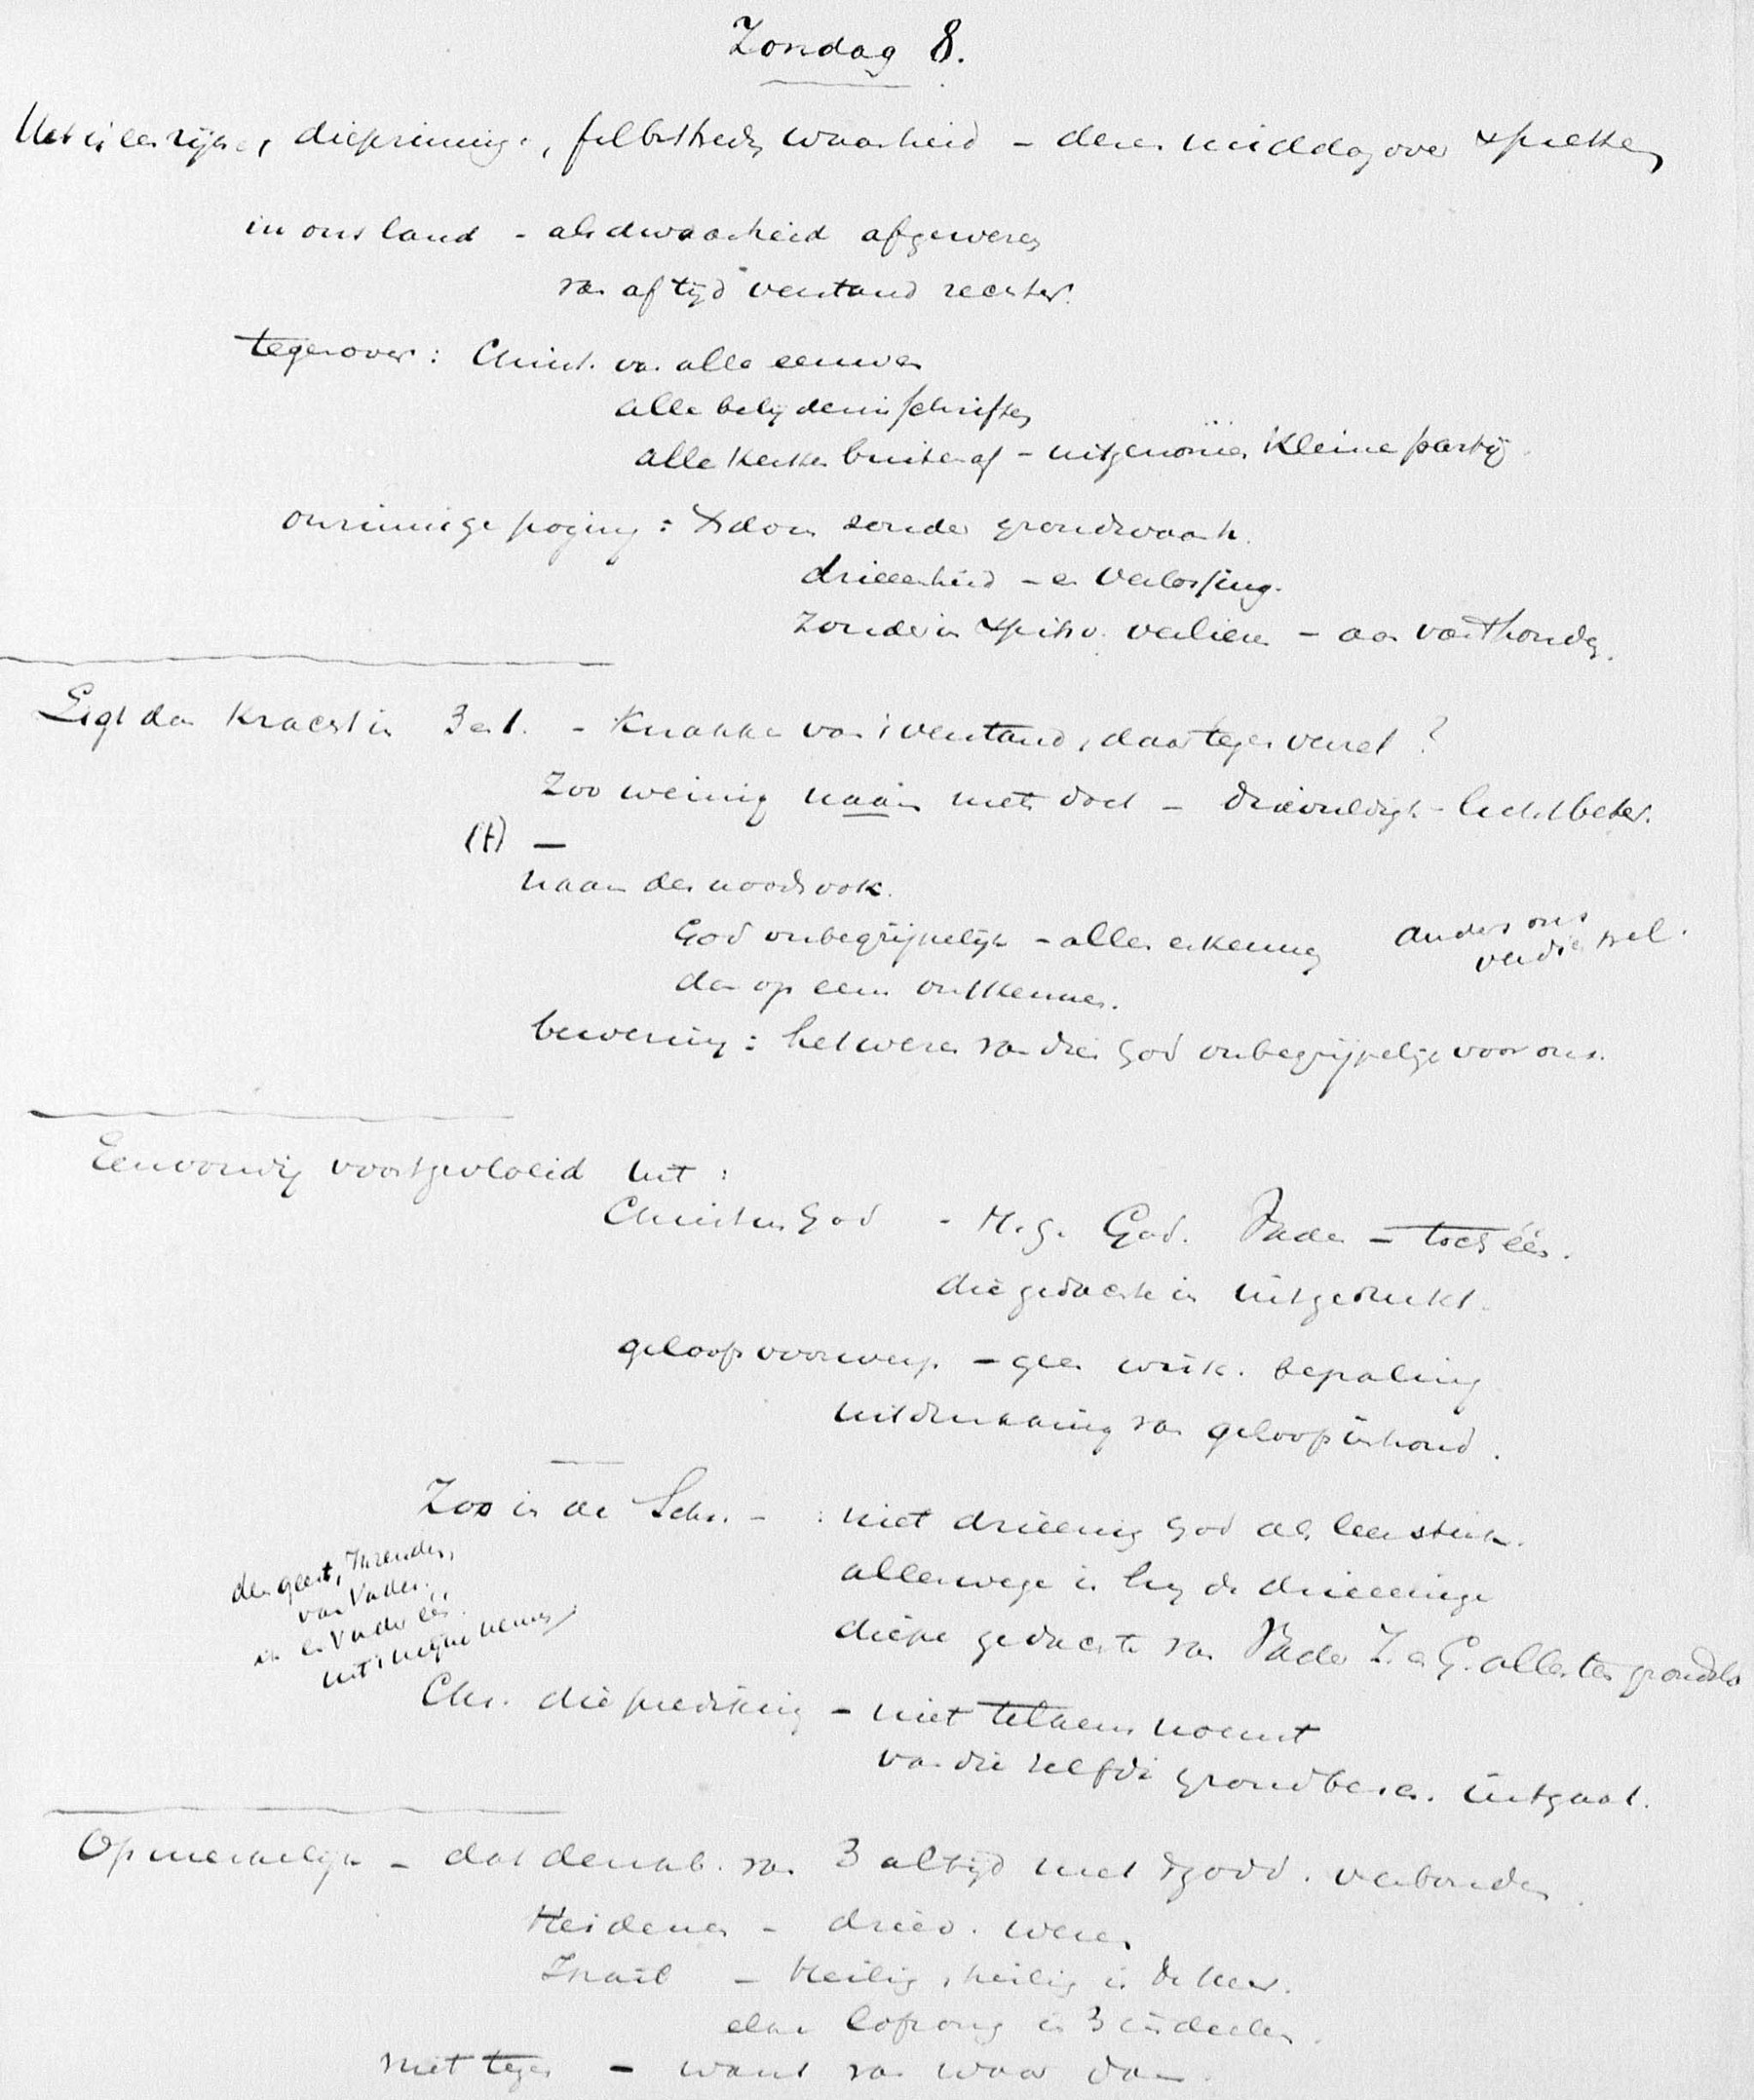 Zondag 8.
Het is een rijke, diepzinnige, felbestreden waarheid - dezen middag over spreken
in ons land - als dwaasheid afgewezen
van af tijd verstand rechter.
tegenover: Christ. van alle eeuwen
alle belijdenisschriften
alle kerken buitenaf - uitgenomen kleine partij.
onzinnige poging: Xdom zonder grondwaarh.
drieeenheid - en Verlossing.
Zonde in verliezen - aan vasthouden.
Ligt dan kracht in 3 en 1. - Knakken van 't verstand, daartegen verzet?
Zoo weinig naam niets doet - drievuldigh. - licht beter.
(t) —
naam des noods ook.
God onbegrijpelijk - allen erkennen
anders ons
verdiepsel.
dan op eens ontkennen.
bewering: het wezen van dien God onbegrijpelijk voor ons.
Eenvoudig voortgevloeid uit:
Christus God - H. G. God. Vader - toch één.
die gedachte is uitgedrukt.
geloofsvoorwerp - geen wisk. bepaling
uitdrukking van geloofsinhoud.
Zoo in de Schr. - : niet drieenig God als leerstuk.
allerwege is hij de drieeenige
diepe gedachte van Vader Z. en G. allen ten grondsl.
den geest, Ik zenden,
van Vader.
ik en Vader één.
uit 't mijne nemen
Chr. die prediking - niet telkens noemt
van die zelfde grondbeses. uitgaat.
Opmerkelijk - dat denkb. van 3 altijd met godd. verbonden.
Heidenen - driev. wezen
Israël - Heilig, heilig is de Heer.
elke lofzang in 3 indeelen.
niet tegen - want van waar dan.